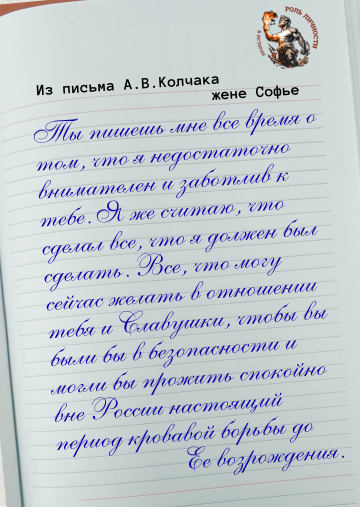 РОЛЬ ЛИЧНОСТИ
В ИСТОРИИ
Из письма А.В.Колчака
жене Софье
Ты пишешь мне все время о
том, что я недостаточно
внимателен и заботлив к
тебе. Я же считаю, что
сделал все, что я должен был
сделать. Все, что могу
сейчас желать в отношении
тебя и Славушки, чтобы вы
были бы в безопасности и
могли бы прожить спокойно
вне России настоящий
период кровавой борьбы до
Ее возрождения.